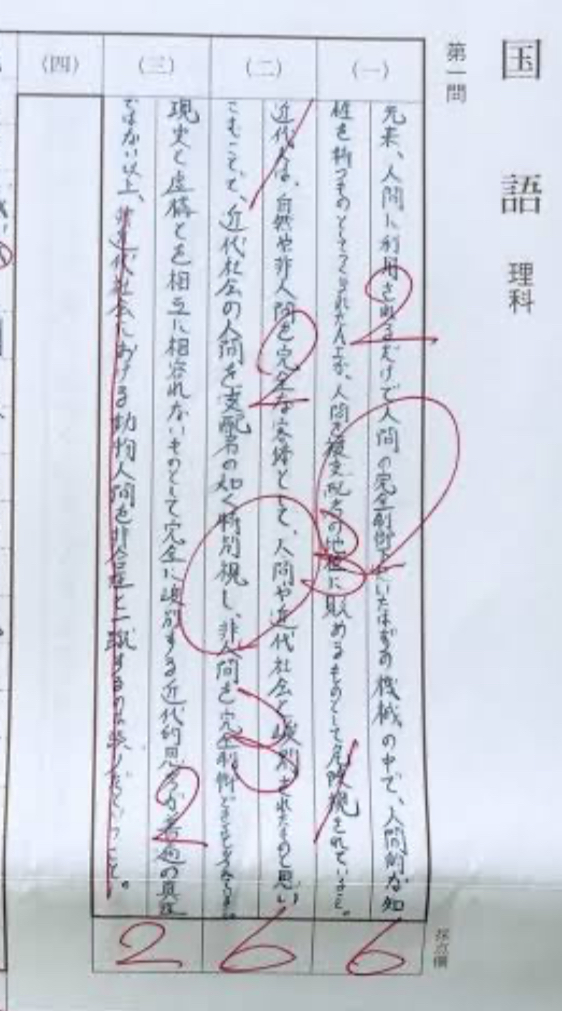 国語 理科
第一問
(一)
元来、人間に利用されるだけで人間の完全制御下にいたはずの機械の中で、人間的な知
性を持つものとしてつくられたAIが、人間を被支配者の地位に貶めるものとして危険視されていること。
2
3
1
6
(二)
近代人は、自然や非人間を完全な客体として、人間や近代社会と峻別されたものと思い
こむことで、近代社会の人間を支配者の如く特別視し、非人間を完全制御できると
2
3
6
(三)
現実と虚構とを相互に相容れないものとして完全に峻別する近代的思考が普遍の真理
ではない以上、非近代社会における動物人間を非合理と一蹴するのは
2
2
(四)
採点欄